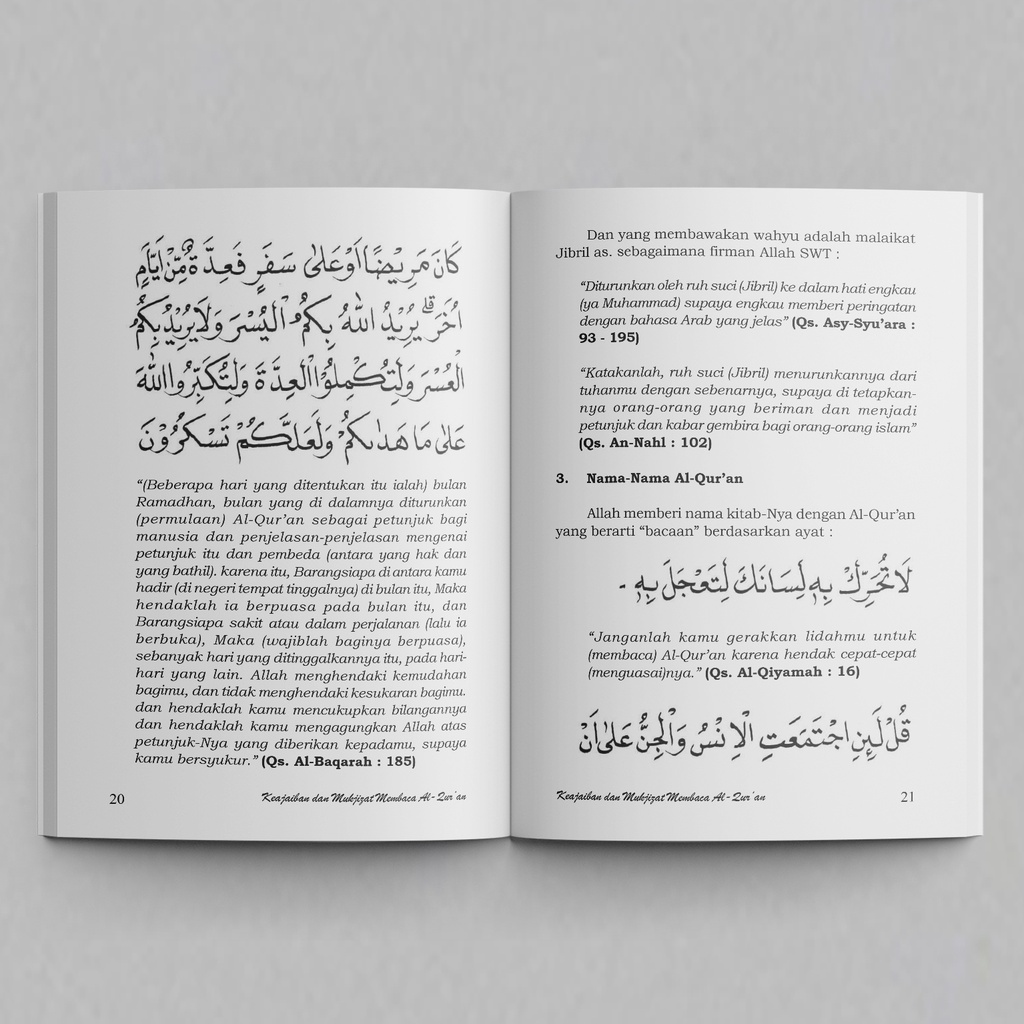 كَانَ مَرِيْضًا اَوْ عَلٰى سَفَرٍ فَعِدَّةٌ مِّنْ اَيَّامٍ
اُخَرَ ۗ يُرِيْدُ اللّٰهُ بِكُمُ الْيُسْرَ وَلَا يُرِيْدُ بِكُمُ
الْعُسْرَ وَلِتُكْمِلُوا الْعِدَّةَ وَلِتُكَبِّرُوا اللّٰهَ
عَلٰى مَا هَدٰىكُمْ وَلَعَلَّكُمْ تَسْكُرُوْنَ
“(Beberapa hari yang ditentukan itu ialah) bulan
Ramadhan, bulan yang di dalamnya diturunkan
(permulaan) Al-Qur’an sebagai petunjuk bagi
manusia dan penjelasan-penjelasan mengenai
petunjuk itu dan pembeda (antara yang hak dan
yang bathil). karena itu, Barangsiapa di antara kamu
hadir (di negeri tempat tinggalnya) di bulan itu, Maka
hendaklah ia berpuasa pada bulan itu, dan
Barangsiapa sakit atau dalam perjalanan (lalu ia
berbuka), Maka (wajiblah baginya berpuasa),
sebanyak hari yang ditinggalkannya itu, pada hari-
hari yang lain. Allah menghendaki kemudahan
bagimu, dan tidak menghendaki kesukaran bagimu.
dan hendaklah kamu mencukupkan bilangannya
dan hendaklah kamu mengagungkan Allah atas
petunjuk-Nya yang diberikan kepadamu, supaya
kamu bersyukur.” (Qs. Al-Baqarah : 185)
20 Keajaiban dan Mukjizat Membaca Al-Qur'an
Dan yang membawakan wahyu adalah malaikat
Jibril as. sebagaimana firman Allah SWT :
“Diturunkan oleh ruh suci (Jibril) ke dalam hati engkau
(ya Muhammad) supaya engkau memberi peringatan
dengan bahasa Arab yang jelas” (Qs. Asy-Syu’ara :
93 - 195)
“Katakanlah, ruh suci (Jibril) menurunkannya dari
tuhanmu dengan sebenarnya, supaya di tetapkan-
nya orang-orang yang beriman dan menjadi
petunjuk dan kabar gembira bagi orang-orang islam”
(Qs. An-Nahl : 102)
3. Nama-Nama Al-Qur’an
Allah memberi nama kitab-Nya dengan Al-Qur’an
yang berarti “bacaan” berdasarkan ayat :
لَا تُحَرِّكْ بِهٖ لِسَانَكَ لِتَعْجَلَ بِهٖ .
“Janganlah kamu gerakkan lidahmu untuk
(membaca) Al-Qur’an karena hendak cepat-cepat
(menguasai)nya.” (Qs. Al-Qiyamah : 16)
قُلْ لَّىِٕنِ اجْتَمَعَتِ الْاِنْسُ وَالْجِنُّ عَلٰٓى اَنْ
Keajaiban dan Mukjizat Membaca Al-Qur'an 21